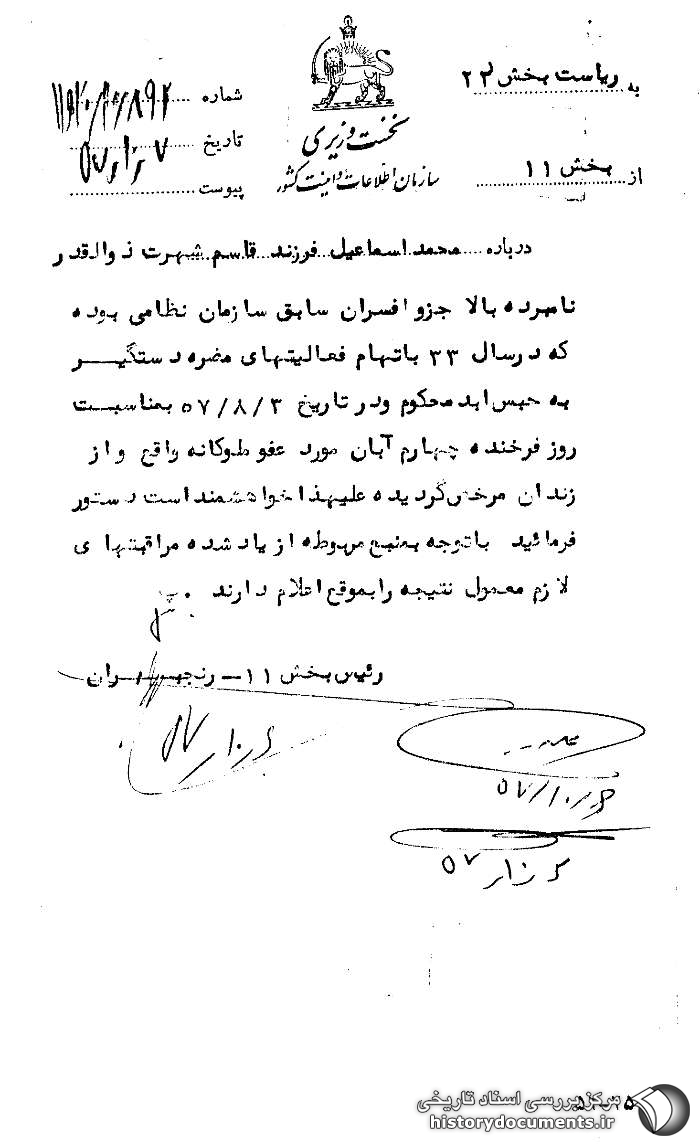 به ریاست بخش ۲۲
از بخش ۱۱
نخست وزیری
سازمان اطلاعات و امنیت کشور
شماره
تاریخ
پیوست
درباره محمد اسماعیل فرزند قاسم شهرت ذوالقدر
نامبرده بالا جزو افسران سابق سازمان نظامی بوده
که در سال ۳۳ باتهام فعالیتهای مضره دستگیر
به حبس ابد محکوم ودر تاریخ ۵۷/۸/۳ بمناسبت
روز فرخنده چهارم آبان مورد عفو ملوکانه واقع و از
زندان مرخص گردیده علیهذا خواهشمند است دستور
فرمائید باتوجه بمنبع مربوطه از یاد شده مراقبتهای
لازم معمول نتیجه را بموقع اعلام دارند
رئیس بخش ۱۱ – رنجبران
مرکز بررسی اسناد تاریخی
historydocuments.ir